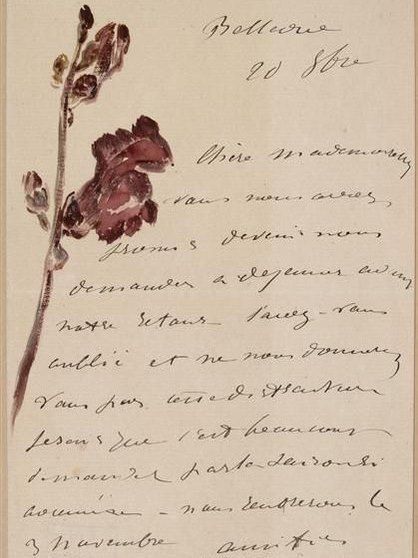 Bellevue
20 8bre
Chère mademoiselle
vous nous aviez
promis de venir nous
demander a dejeuner avant
notre retour l'avez-vous
oublié et ne nous donnerez
vous pas cette distraction
je sens que c'est beaucoup
demander par la saison si
avancée - nous rentrerons le
3 novembre amitiés